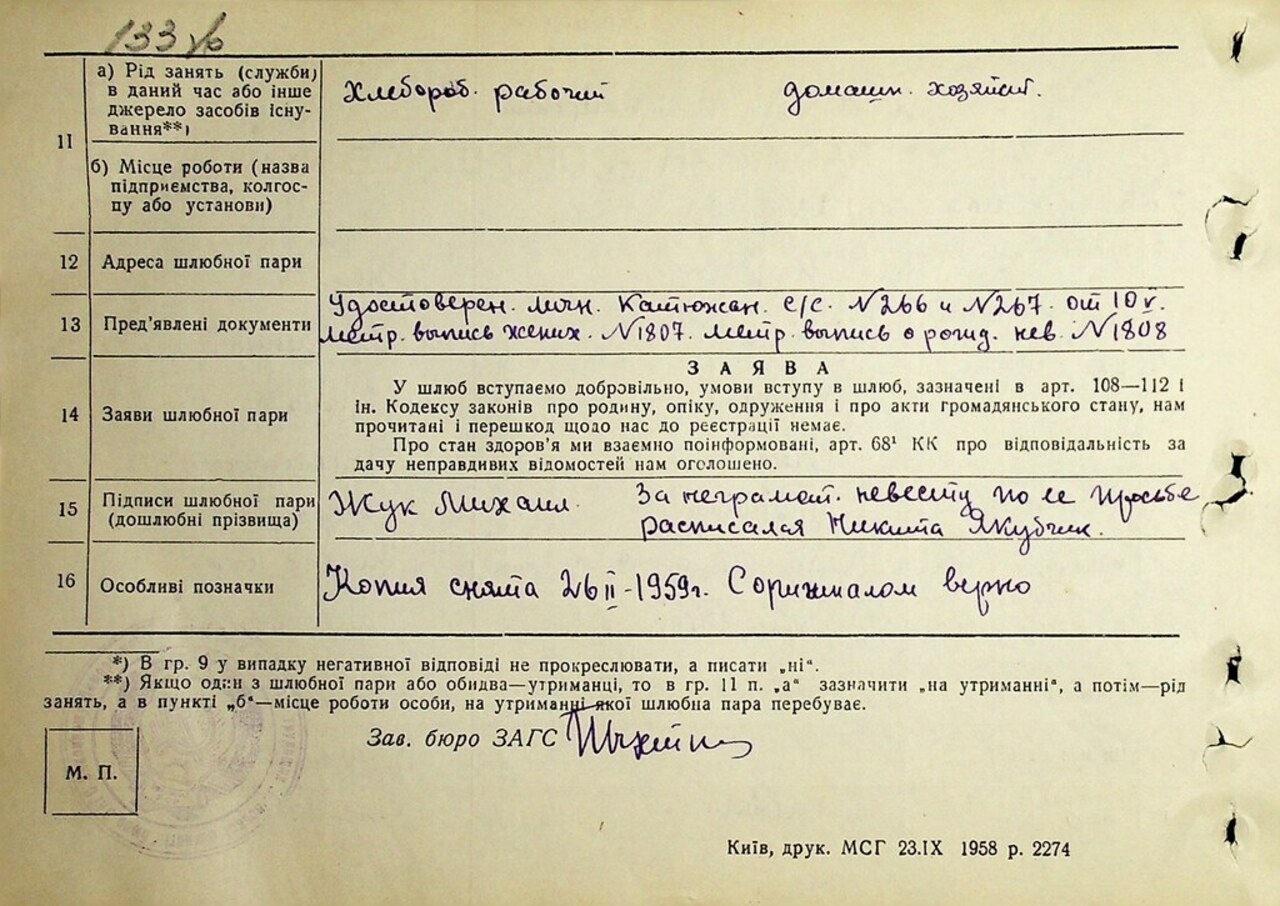 133
11
а) Рід занять (служби)
в даний час або інше
джерело засобів існу-
вання**)
Хлебороб. рабочий домашн. хозяйст.
б) Місце роботи (назва
підприємства, колгос-
пу або установи)
12 Адреса шлюбної пари
13 Пред'явлені документи
Удостоверен. личн. Катюжан. с/с. N266 и N267. от 10
Метр. выпись жених. N1807. метр. выпись о рожд. нев. N1808
14 Заяви шлюбної пари
ЗАЯВА
У шлюб вступаємо добровільно, умови вступу в шлюб, зазначені в арт. 108—112 і
ін. Кодексу законів про родину, опіку, одруження і про акти громадянського стану, нам
прочитані і перешкод щодо нас до реєстрації немає.
Про стан здоров'я ми взаємно поінформовані, арт. 68¹ КК про відповідальність за
дачу неправдивих відомостей нам оголошено.
15 Підписи шлюбної пари
(дошлюбні прізвища)
Жук Михаил. За неграмот. невесту по ее просьбе
расписался Никита Якубчик.
16 Особливі позначки
Копия снята 26 II-1959г. С оригиналом верно
*) В гр. 9 у випадку негативної відповіді не прокреслювати, а писати „ні“.
**) Якщо один з шлюбної пари або обидва—утриманці, то в гр. 11 п. „а“ зазначити „на утриманні“, а потім—рід
занять, а в пункті „б“—місце роботи особи, на утриманні якої шлюбна пара перебуває.
Зав. бюро ЗАГС
М. П.
Київ, друк. МСГ 23.IX 1958 р. 2274